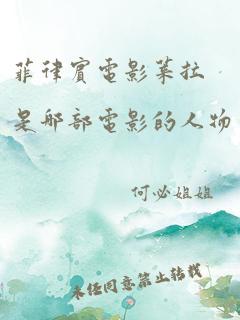 菲律賓電影萊拉
是哪部電影的人物
何必姐姐
未经同意禁止转载